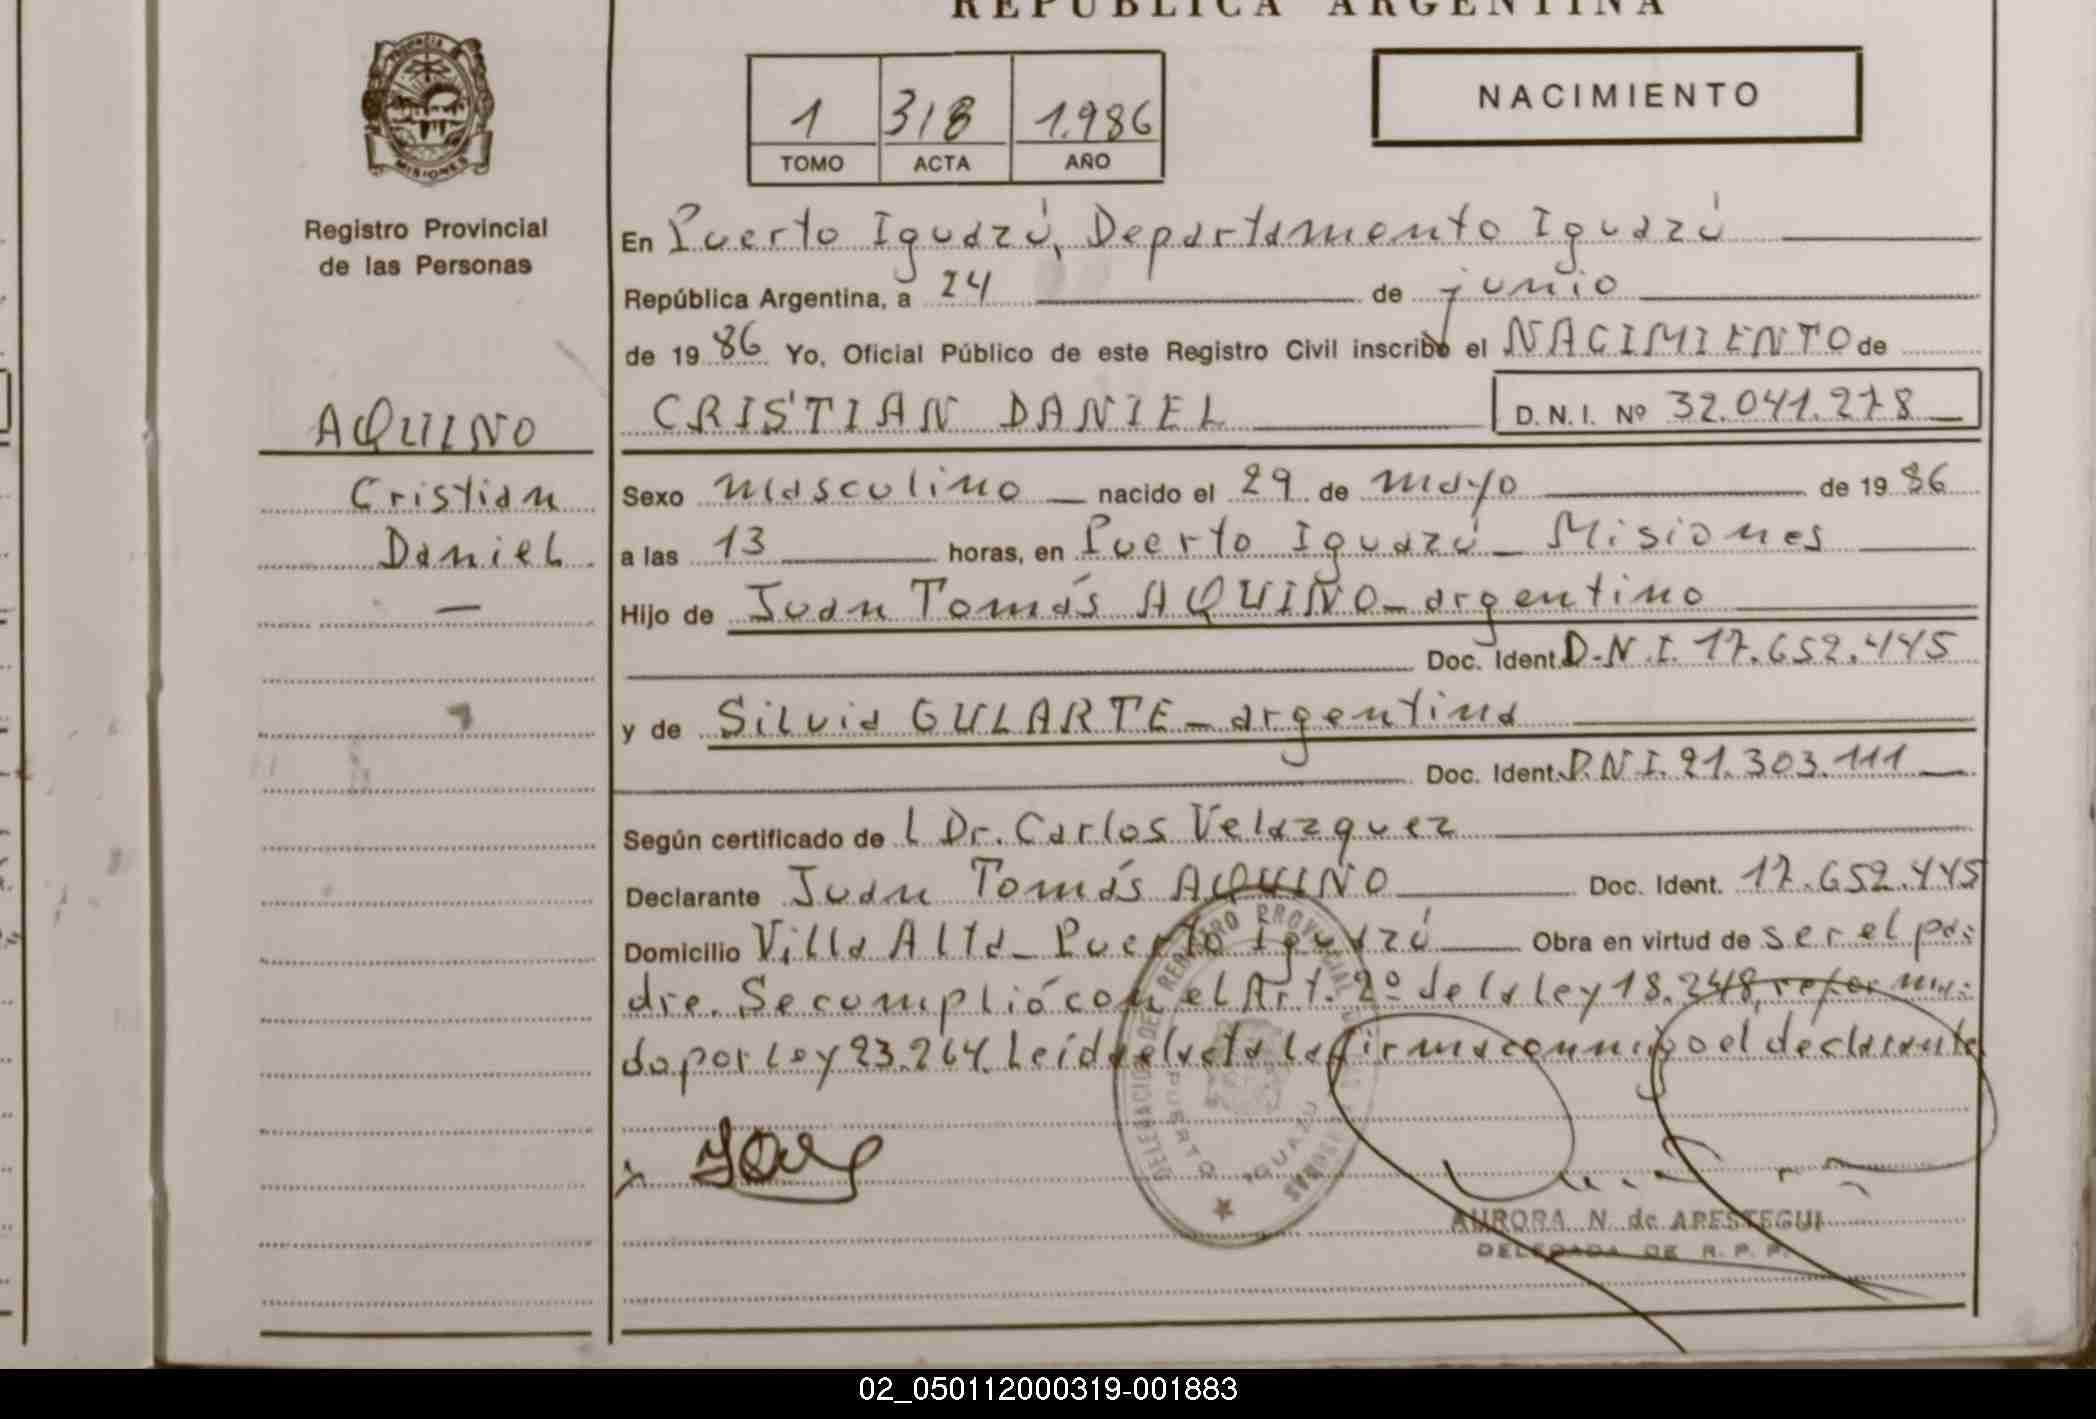 REPUBLICA ARGENTINA
PROVINCIA DE
MISIONES
1 318 1.986
TOMO ACTA AÑO
NACIMIENTO
Registro Provincial
de las Personas
AQUINO
Cristian
Daniel
En Puerto Iguazú, Departamento Iguazú
República Argentina, a 24 de junio
de 19 86 Yo, Oficial Público de este Registro Civil inscribo el NACIMIENTO de
CRISTIAN DANIEL D.N.I. Nº 32.041.278
Sexo masculino nacido el 29 de mayo de 19 86
a las 13 horas, en Puerto Iguazú - Misiones
Hijo de Juan Tomás AQUINO - argentino
Doc. Ident. D.N.I. 17.652.445
y de Silvia GULARTE - argentina
Doc. Ident. D.N.I. 21.303.111
Según certificado de l Dr. Carlos Velazquez
Declarante Juan Tomás AQUINO Doc. Ident. 17.652.445
Domicilio Villa Alta - Puerto Iguazú Obra en virtud de ser el pa-
dre. Se cumplió con el Art. 2º de la ley 18.248, reforma-
do por Ley 23.264. Leída el acta la firma conmigo el declarante
DELEGACION DEL REGISTRO PROVINCIAL DE LAS PERSONAS
PUERTO IGUAZU
AURORA N. de APESTEGUI
DELEGADA DE R. P. P.
02_050112000319-001883